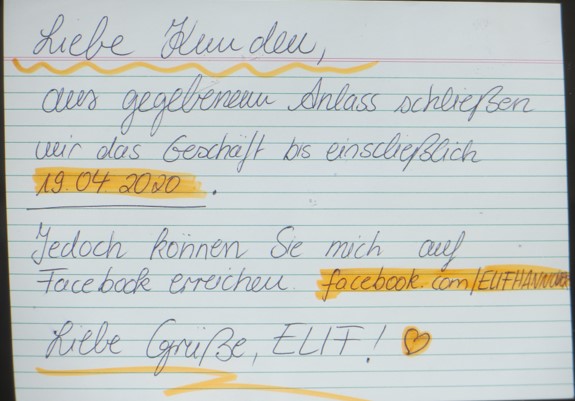 Liebe Kunden,
aus gegebenem Anlass schließen
wir das Geschäft bis einschließlich
19.04 2020.
Jedoch können Sie mich auf
Facebook erreichen. facebook.com/ELIFHANNOVER
Liebe Grüße, ELIF! ♡